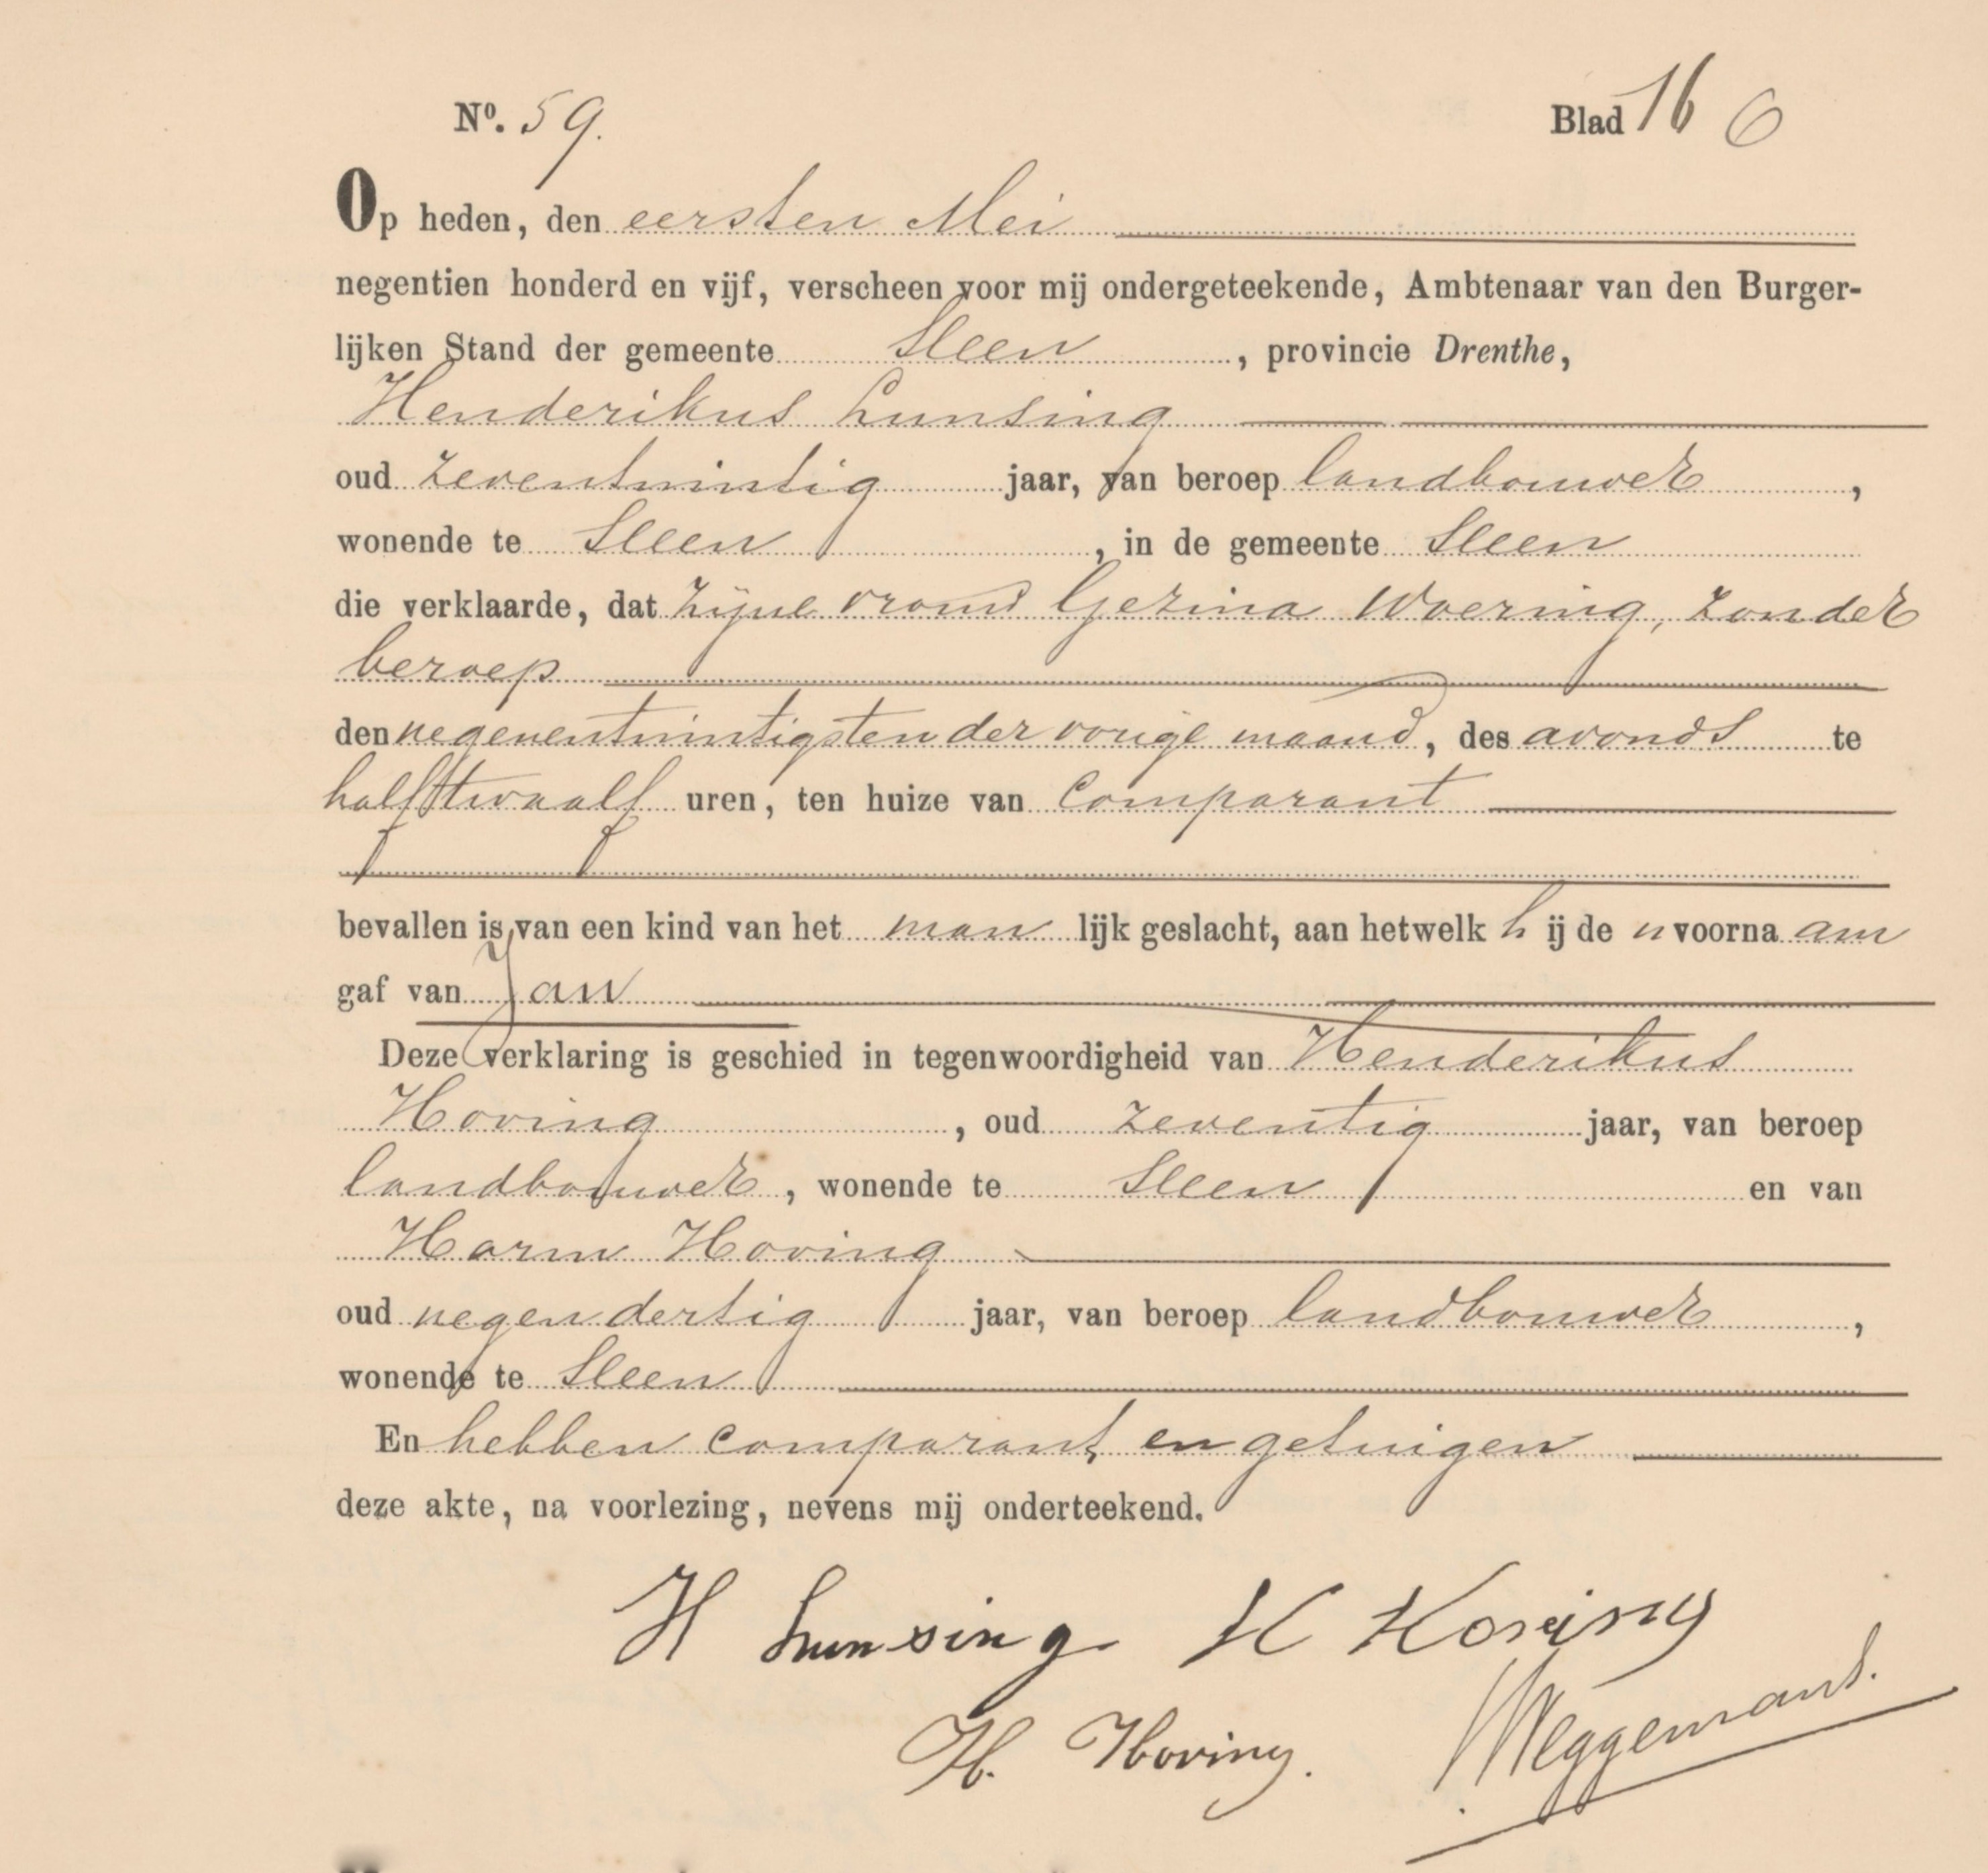 Nº. 59. Blad 16 6
Op heden, den eersten Mei
negentien honderd en vijf, verscheen voor mij ondergeteekende, Ambtenaar van den Burger-
lijken Stand der gemeente Sleen, provincie Drenthe,
Henderikus Lunsing
oud zeventwintig jaar, van beroep landbouwer,
wonende te Sleen, in de gemeente Sleen
die verklaarde, dat zijne vrouw Gezina Woering, zonder
beroep
den negenentwintigsten der vorige maand, des avonds te
half twaalf uren, ten huize van comparant
bevallen is van een kind van het man lijk geslacht, aan hetwelk h ij de n voorna am
gaf van Jan
Deze verklaring is geschied in tegenwoordigheid van Henderikus
Hoving, oud zeventig jaar, van beroep
landbouwer, wonende te Sleen en van
Harm Hoving
oud negendertig jaar, van beroep landbouwer,
wonende te Sleen
En hebben comparant en getuigen
deze akte, na voorlezing, nevens mij onderteekend.
H Lunsing H Hoving
H. Hoving. Weggemans.